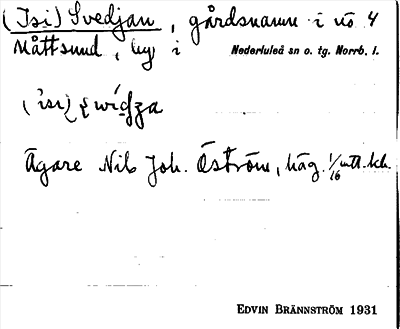 (Isi) Svedjan, gårdsnamn i nö 4
Måttsund, by i Nederluleå sn o. tg. Norrb. l.
Ägare Nils Joh. Öström, häg. 1/16 mtl.
EDVIN BRÄNNSTRÖM 1931